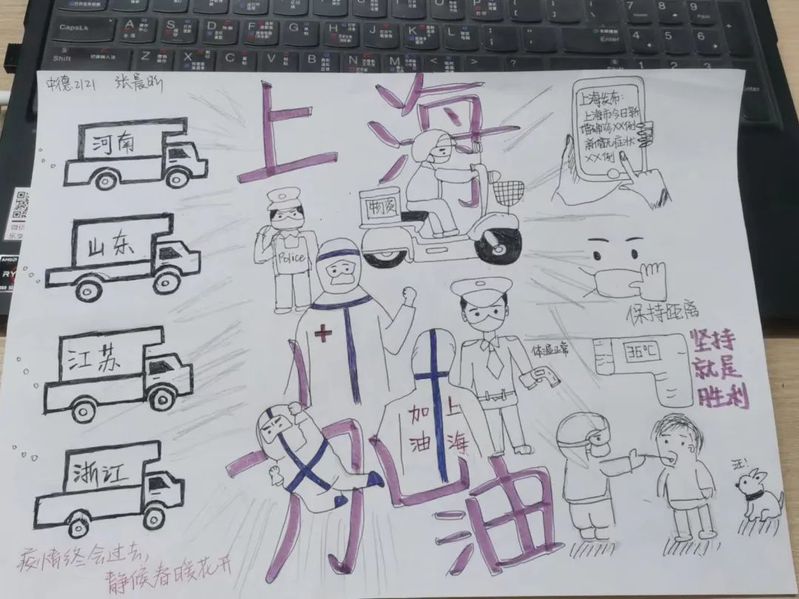 CapsLk
A S D F G H J K L
Enter
Shift
Z X C V B N M
中德2121
上海
上海发布:
上海市今日新
增确诊XX例
新增无症状
XX例
河南
山东
江苏
浙江
物资
Police
保持距离
体温正常
36℃
坚持
就是
胜利
上海
加油
汪!
加油
疫情终会过去,
静候春暖花开